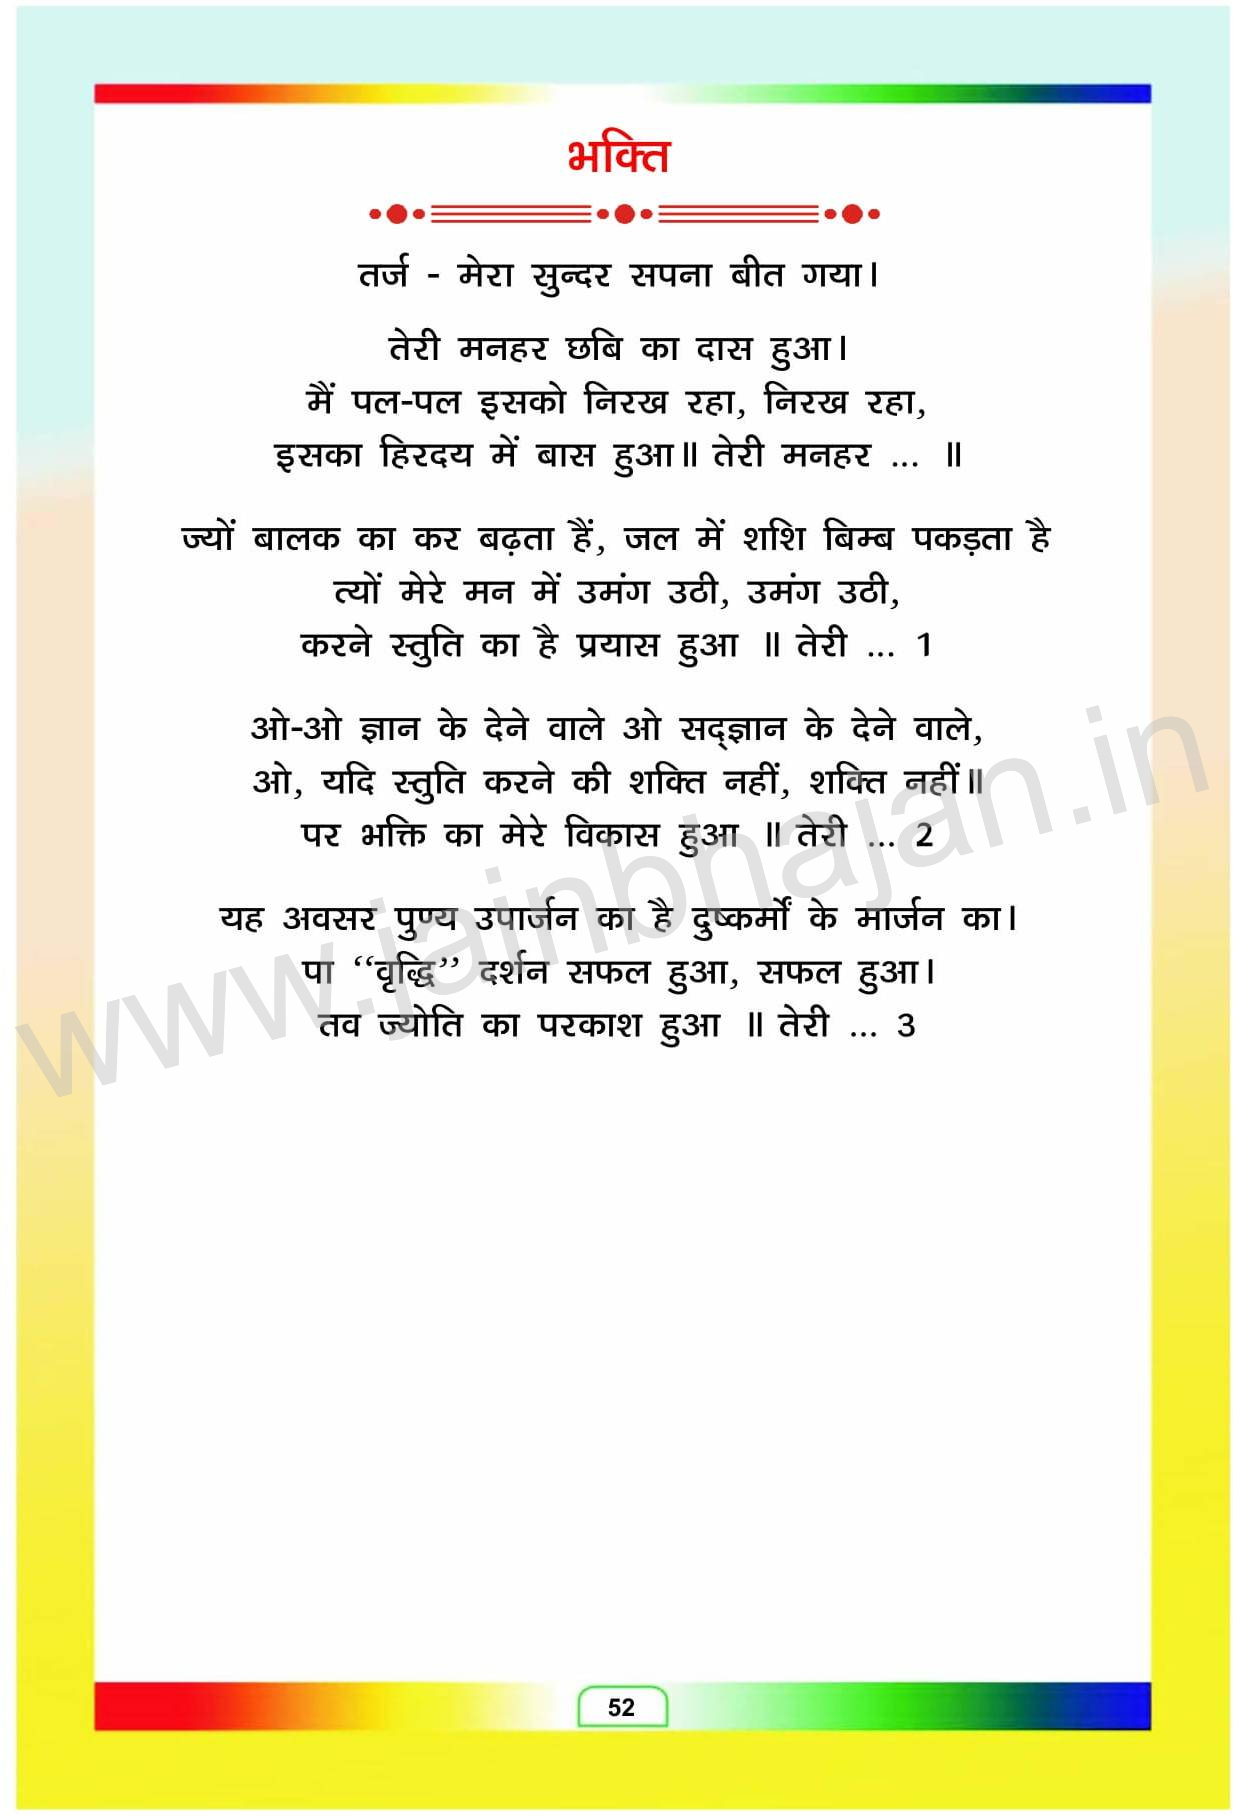 भक्ति
तर्ज - मेरा सुन्दर सपना बीत गया।
तेरी मनहर छबि का दास हुआ।
मैं पल-पल इसको निरख रहा, निरख रहा,
इसका हिरदय में बास हुआ॥ तेरी मनहर ... ॥
ज्यों बालक का कर बढ़ता हैं, जल में शशि बिम्ब पकड़ता है
त्यों मेरे मन में उमंग उठी, उमंग उठी,
करने स्तुति का है प्रयास हुआ ॥ तेरी ... 1
ओ-ओ ज्ञान के देने वाले ओ सद्ज्ञान के देने वाले,
ओ, यदि स्तुति करने की शक्ति नहीं, शक्ति नहीं॥
पर भक्ति का मेरे विकास हुआ ॥ तेरी ... 2
यह अवसर पुण्य उपार्जन का है दुष्कर्मों के मार्जन का।
पा ‘‘वृद्धि’’ दर्शन सफल हुआ, सफल हुआ।
तव ज्योति का परकाश हुआ ॥ तेरी ... 3
www.jainbhajan.in
52